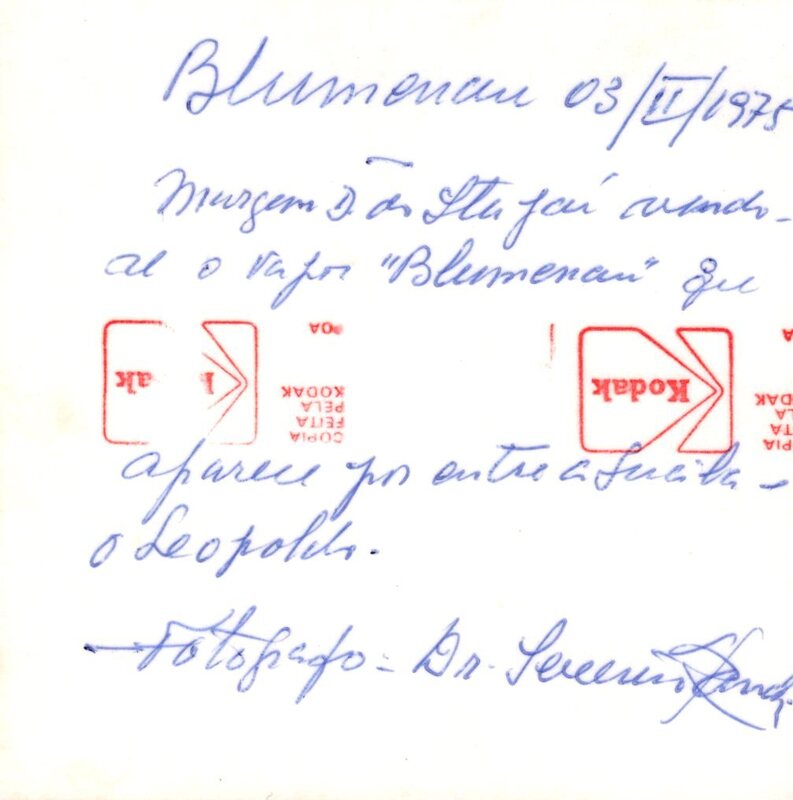 Blumenau 03/II/1975
Margem D. do Itajaí vendo-
se o vapor "Blumenau" que
Kodak
COPIA
FEITA
PELA
KODAK
POA
Kodak
KODAK
aparece por entre a Lucila -
o Leopoldo.
— Fotógrafo = Dr.